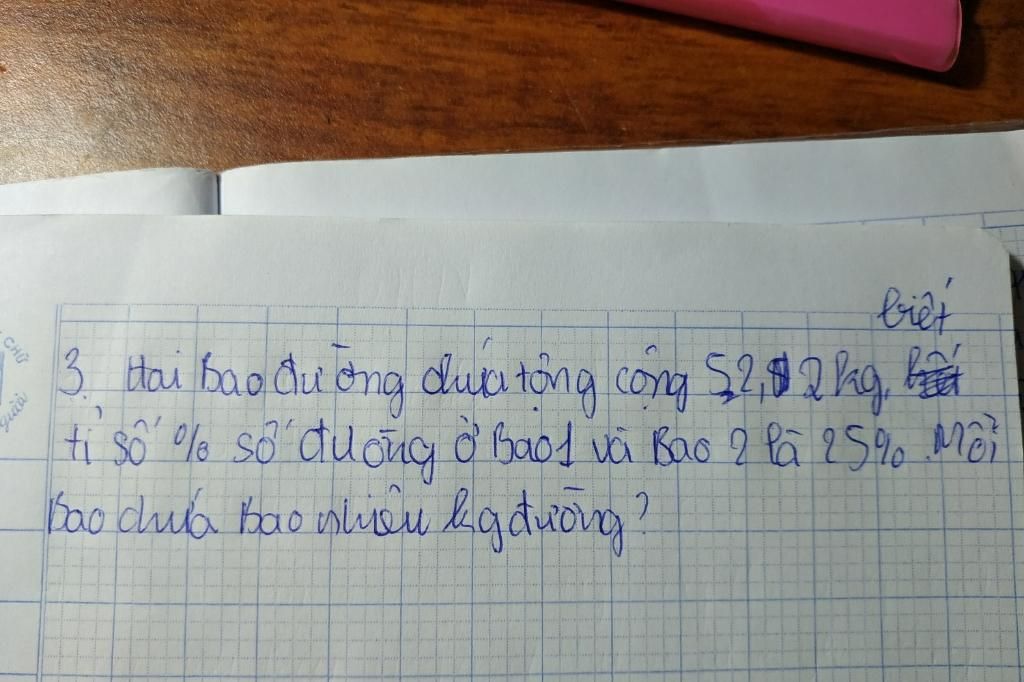 biết
3. Hai bao đường chứa tổng cộng 52,2kg.
tỉ số % số đường ở Bao1 và Bao 2 là 25%. Mỗi
Bao chứa Bao nhiêu kg đường?
CHỮ